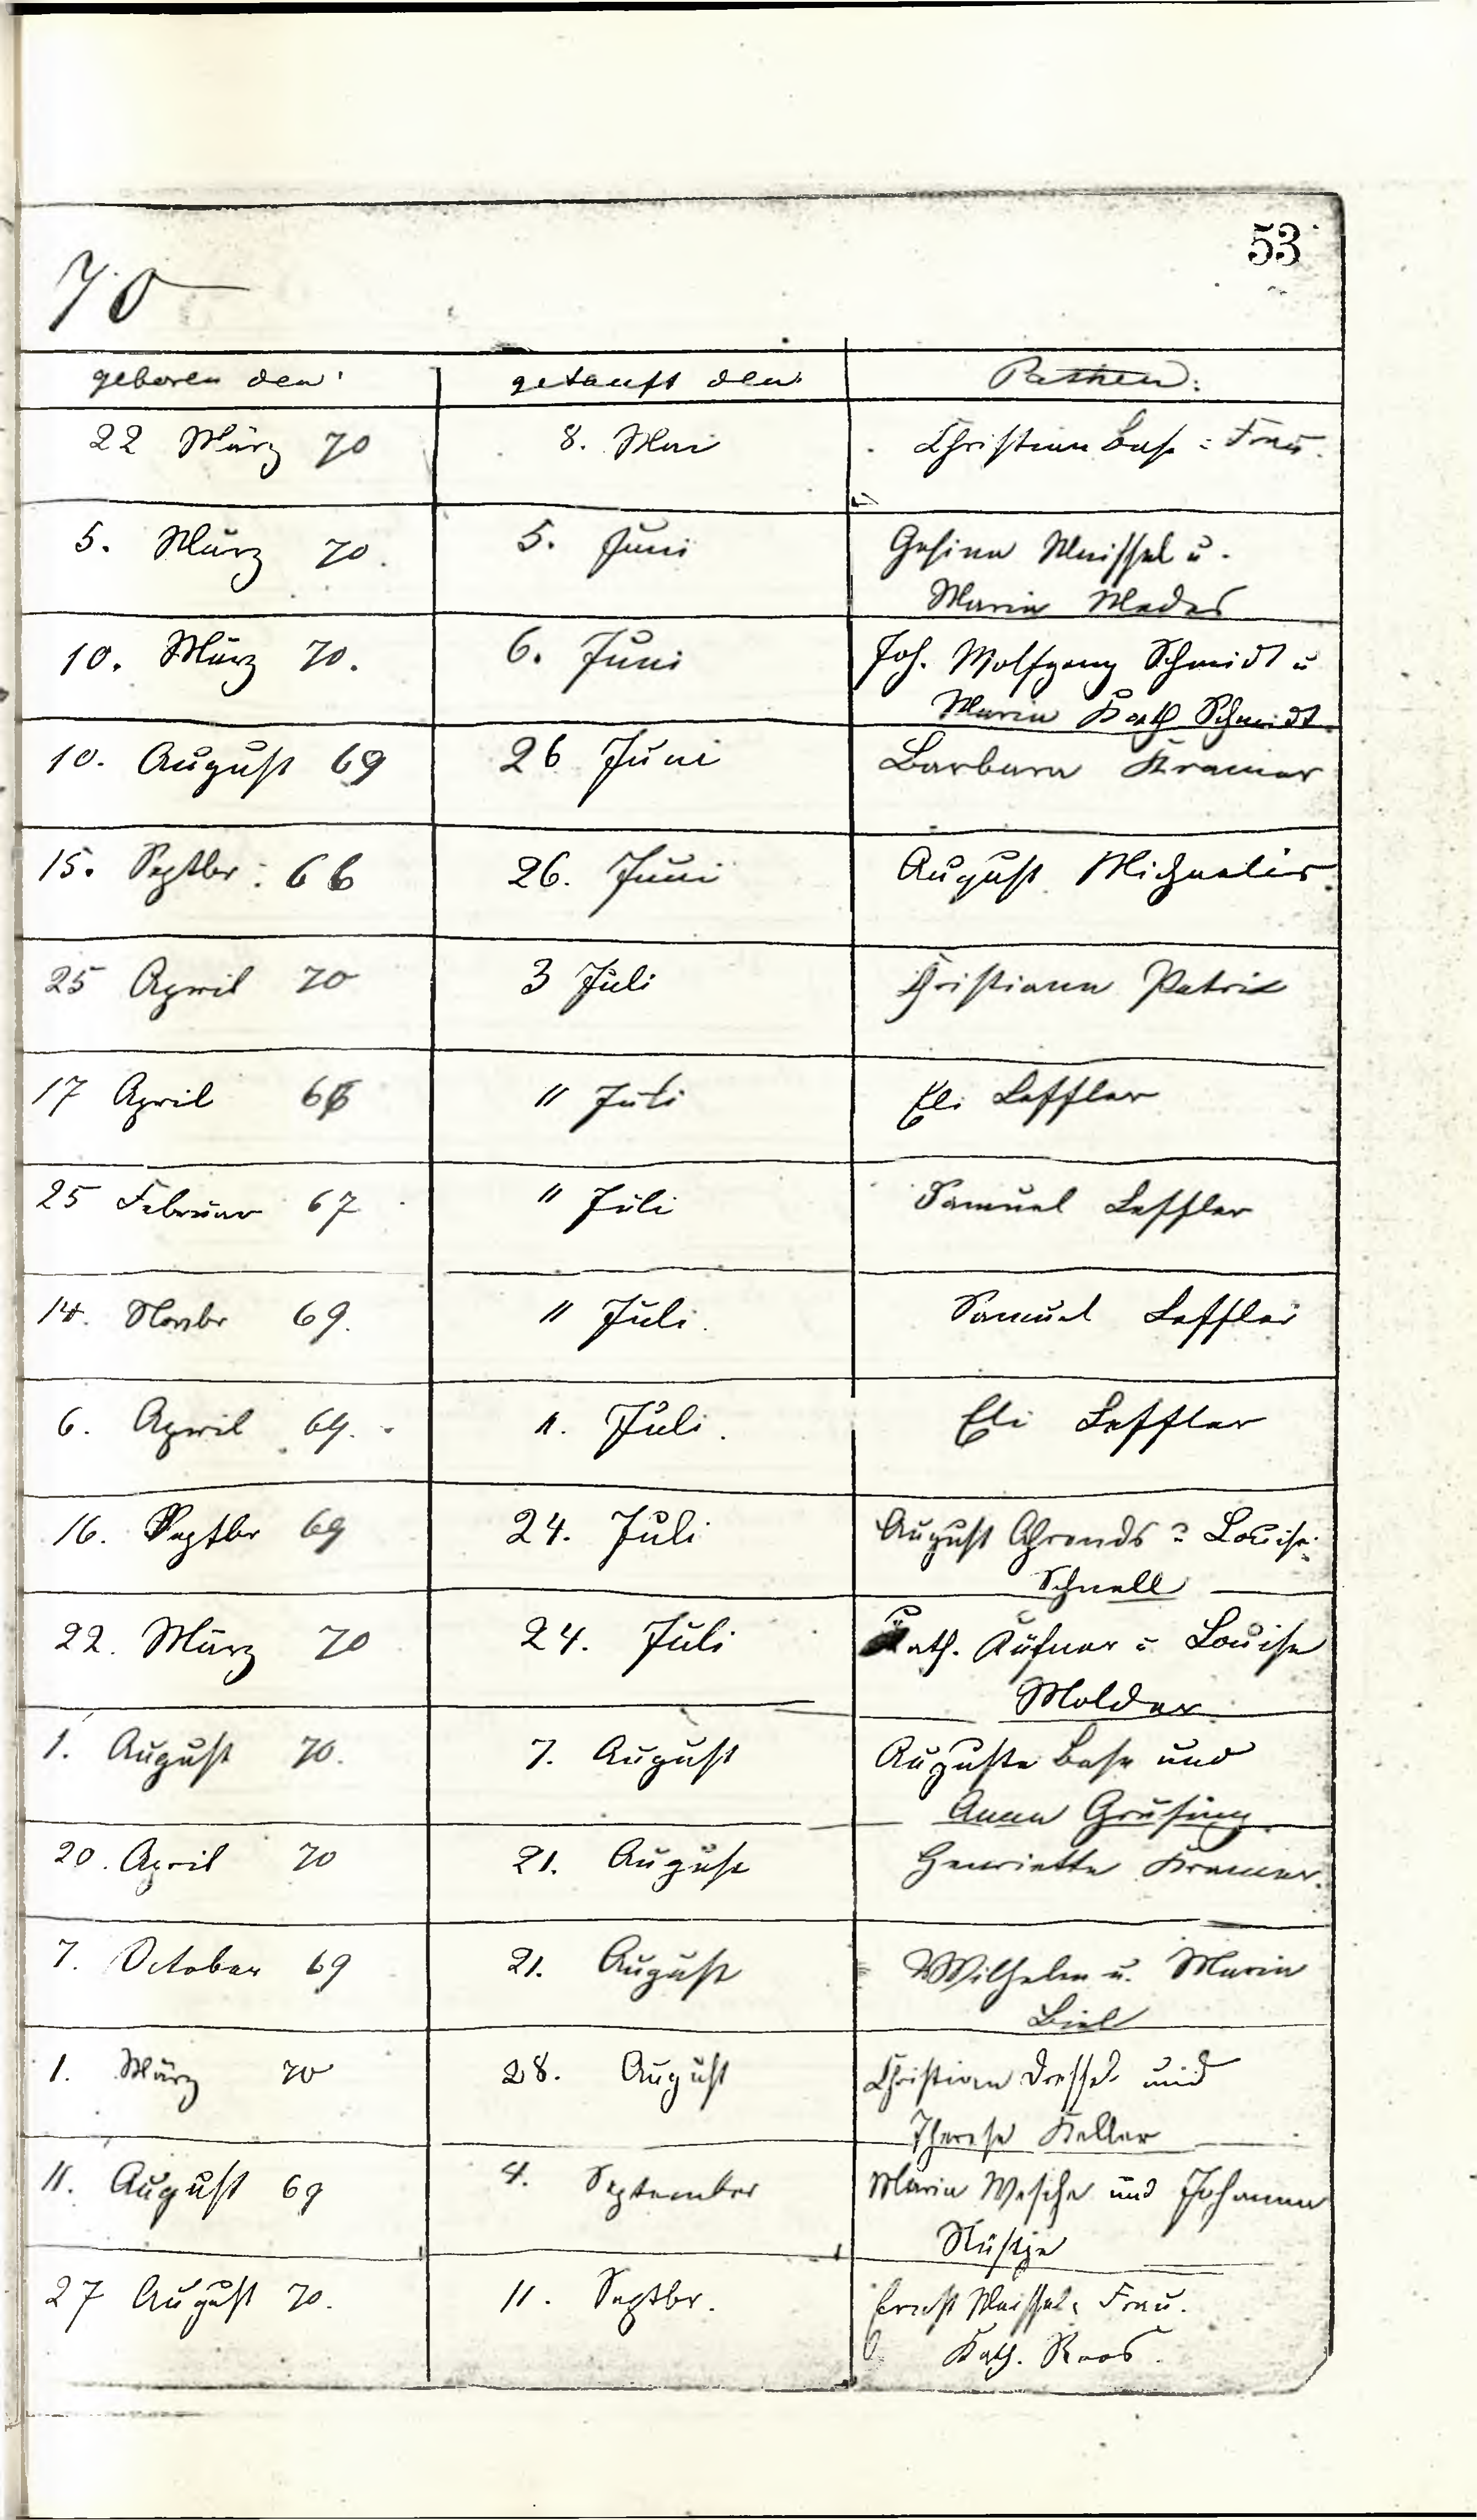 53
70
geboren den getauft den Pathen:
22 März 70 8. Mai Christian Base u Frau.
5. März 70. 5. Juni Gesina Meissel u.
Maria Mades
10. März 70. 6. Juni Joh. Wolfgang Schmidt u
Maria Kath Schmidt
10. August 69 26 Juni Barbara Kramer
15. Septbr. 66 26. Juni August Michaelis
25 April 70 3 Juli Christiann Patrix
17 April 66 11 Juli Eli Leffler
25 Februar 67 11 Juli Samuel Leffler
14. Novbr 69. 11 Juli. Samuel Leffler
6. April 69. 11. Juli. Eli Leffler
16. Septbr 69 24. Juli August Ahrends u Louise
Schnell
22. März 70 24. Juli Kath. Küfner u Louise
Molder
1. August 70. 7. August Auguste Base und
Anna Grüsing
20. April 70 21. August Henriette Kramer.
7. October 69 21. August Wilhelm u. Maria
Biel
1. März 70 28. August Christian Dressel und
Therese Keller
11. August 69 4. September Maria Wesche und Johanna
Nüstje
27 August 70. 11. Septbr. Ernst Meissel u Frau.
Kath. Roos.